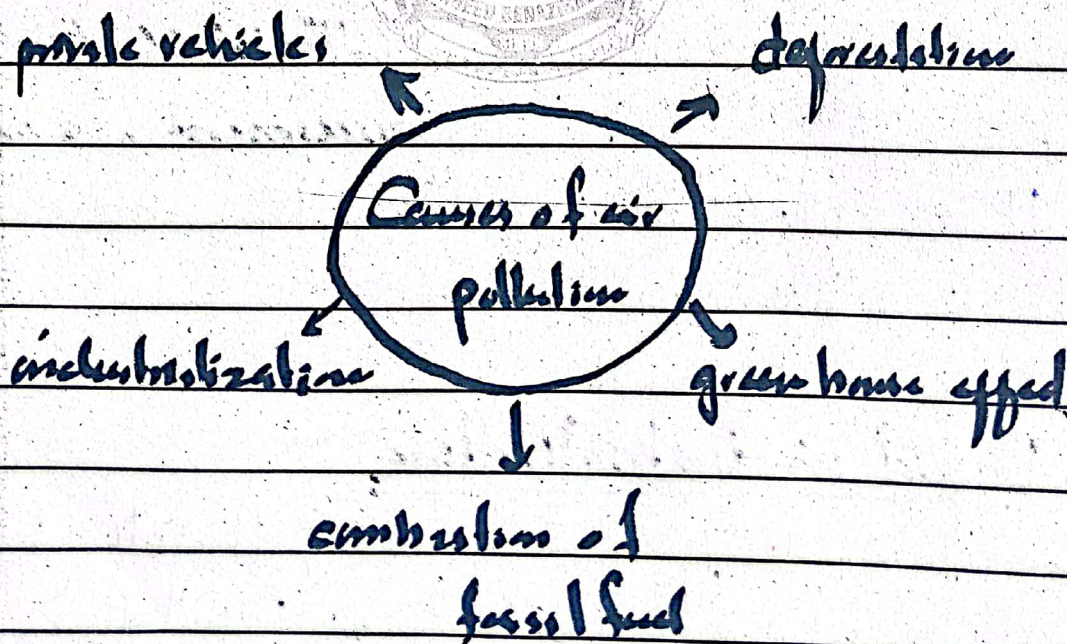 private vehicles
deforestation
Causes of air
pollution
industrialization
green house effect
combustion of
fossil fuel